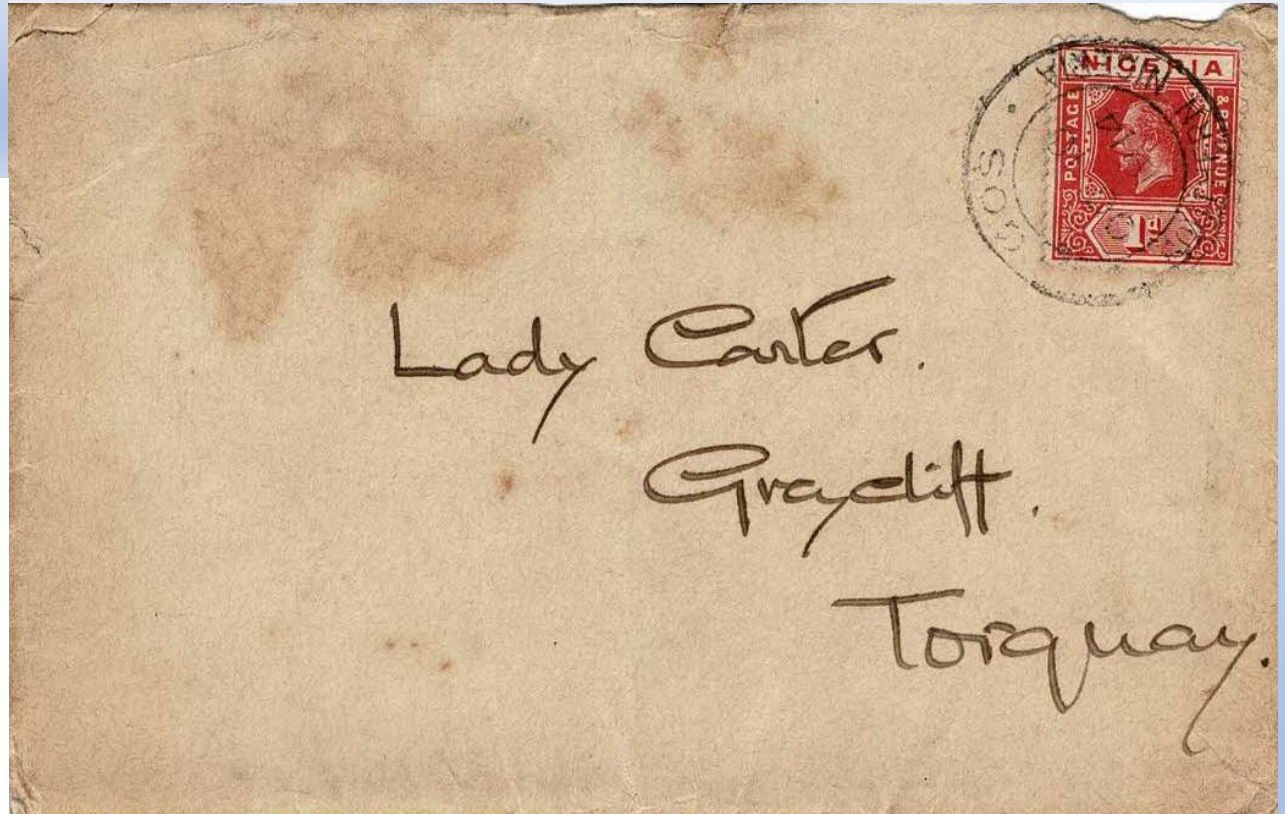 NIGERIA
POSTAGE & REVENUE
1d
Lady Carter.
Graycliff.
Torquay.